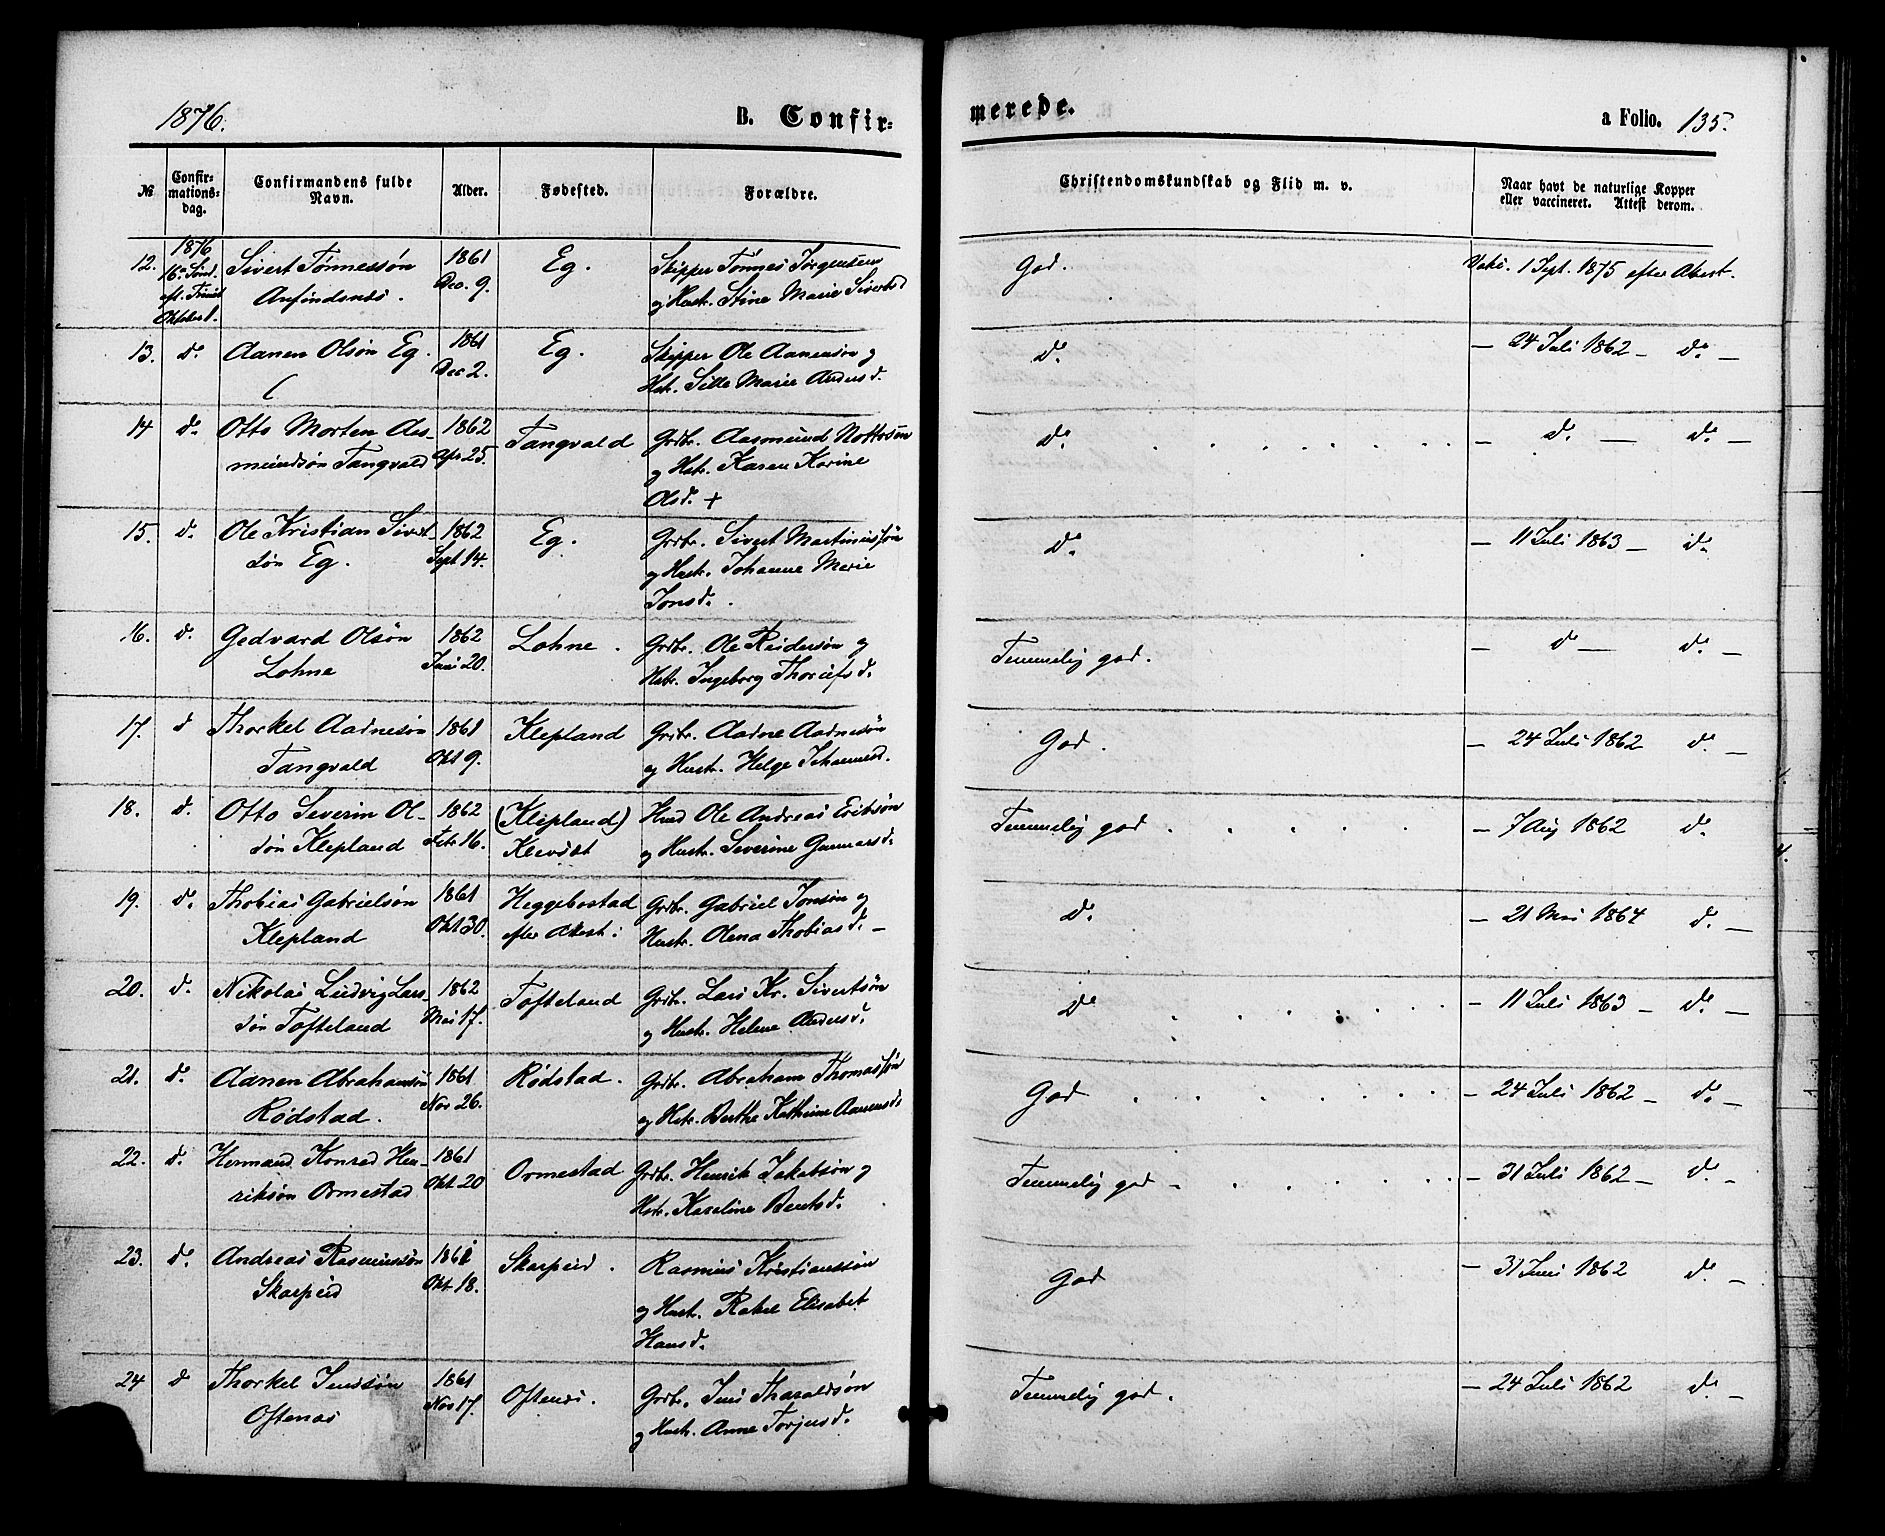 1876.
B. Confir-
merede.
a Folio. 135.
№
Confir-
mations-
dag.
Confirmandens fulde
Navn.
Alder.
Fødested.
Forældre.
Christendomskundskab og Flid m. v.
Naar havt de naturlige Kopper
eller vaccineret. Attest derom.
12. 1876 16. Sønd. eft. Trinit Oktober 1. Sivert Tønnessøn 1861 Dec. 9. Eg. Skipper Tønnes Jørgensen
og Hustr. Stine Marie Sivertsd
God. Vaks. 1 Sept. 1875 efter Attest.
13. d. Aanen Olsøn Eg. 1861 Dec 2. Eg. Skipper Ole Aanensøn og
Hstr. Sille Marie Anders d.
d. — 24 Juli 1862 — d. —
14 d. Otto Morten Aas-
mundsøn Tangvald 1862 Apr 25. Tangvald Grdbr. Aasmund Nottosøn
og Hstr. Karen Karine
Ols d. +
d. — d. — d. —
15. d. Ole Kristian Sivert-
søn Eg. 1862 Sept 14. Eg. Grdbr. Sivert Martiniussøn
og Hustr. Johanne Marie
Jons d.
d. — 11 Juli 1863 — d.
16. d. Gedvard Olsøn
Lohne 1862 Juni 20. Lohne. Grdbr. Ole Reidersøn og
Hstr. Ingeborg
Temmelig god. — d — d. —
17. d Thorkel Aadnesøn
Tangvald 1861 Okt 9. Klepland Grdbr. Aadne Aadnesøn
og Hustr. Helge
God. — 24 Juli 1862 d. —
18. d. Otto Severin Ol-
søn Klepland 1862 Feb 16. (Klepland) Hmd Ole Andreas Eriksøn
og Hustr. Severine Gunnars d.
Temmelig god — 7 Aug 1862 d.
19. d. Thobias Gabrielsøn
Klepland 1861 Okt 30. Heggebostad
efter Attest: Grdbr. Gabriel Jonsøn og
Hustr. Olena Thobias d. —
d. — 21 Mai 1864 d. —
20. d. Nikolai Ludvig Lars-
søn Tofteland 1862 Mai 17. Tofteland Grdbr. Lars Kr. Sivertsøn
og Hustr. Helene Anders d.
d — 11 Juli 1863 — d. —
21. d. Aanen Abrahamsøn
Rödstad. 1861 Nov 26. Rödstad. Grdbr. Abraham Thomassøn
og Hstr. Berthe Kathrine Aanensd.
God — 24 Juli 1862 — d. —
22. d. Hermand Konrad Hen-
riksøn Ormestad 1861 Okt. 20 Ormestad Grdbr. Henrik Jakobsøn og
Hstr. Karoline Bents d.
Temmelig god — 31 Juli 1862 — d. —
23. d. Andreas Rasmussøn
Skarpeid 1861 Okt. 18. Skarpeid. Rasmus Kristianssøn
og Hustr. Rakel Elisabet
Hans d.
God — 31 Juni 1862 d. —
24 d Thorkel Jenssøn
Oftenas 1861 Nov 17. Oftenes. Grdbr. Jens Tharaldsøn
og Hustr. Anne Torjus d.
Temmelig god. — 24 Juli 1862 d. —